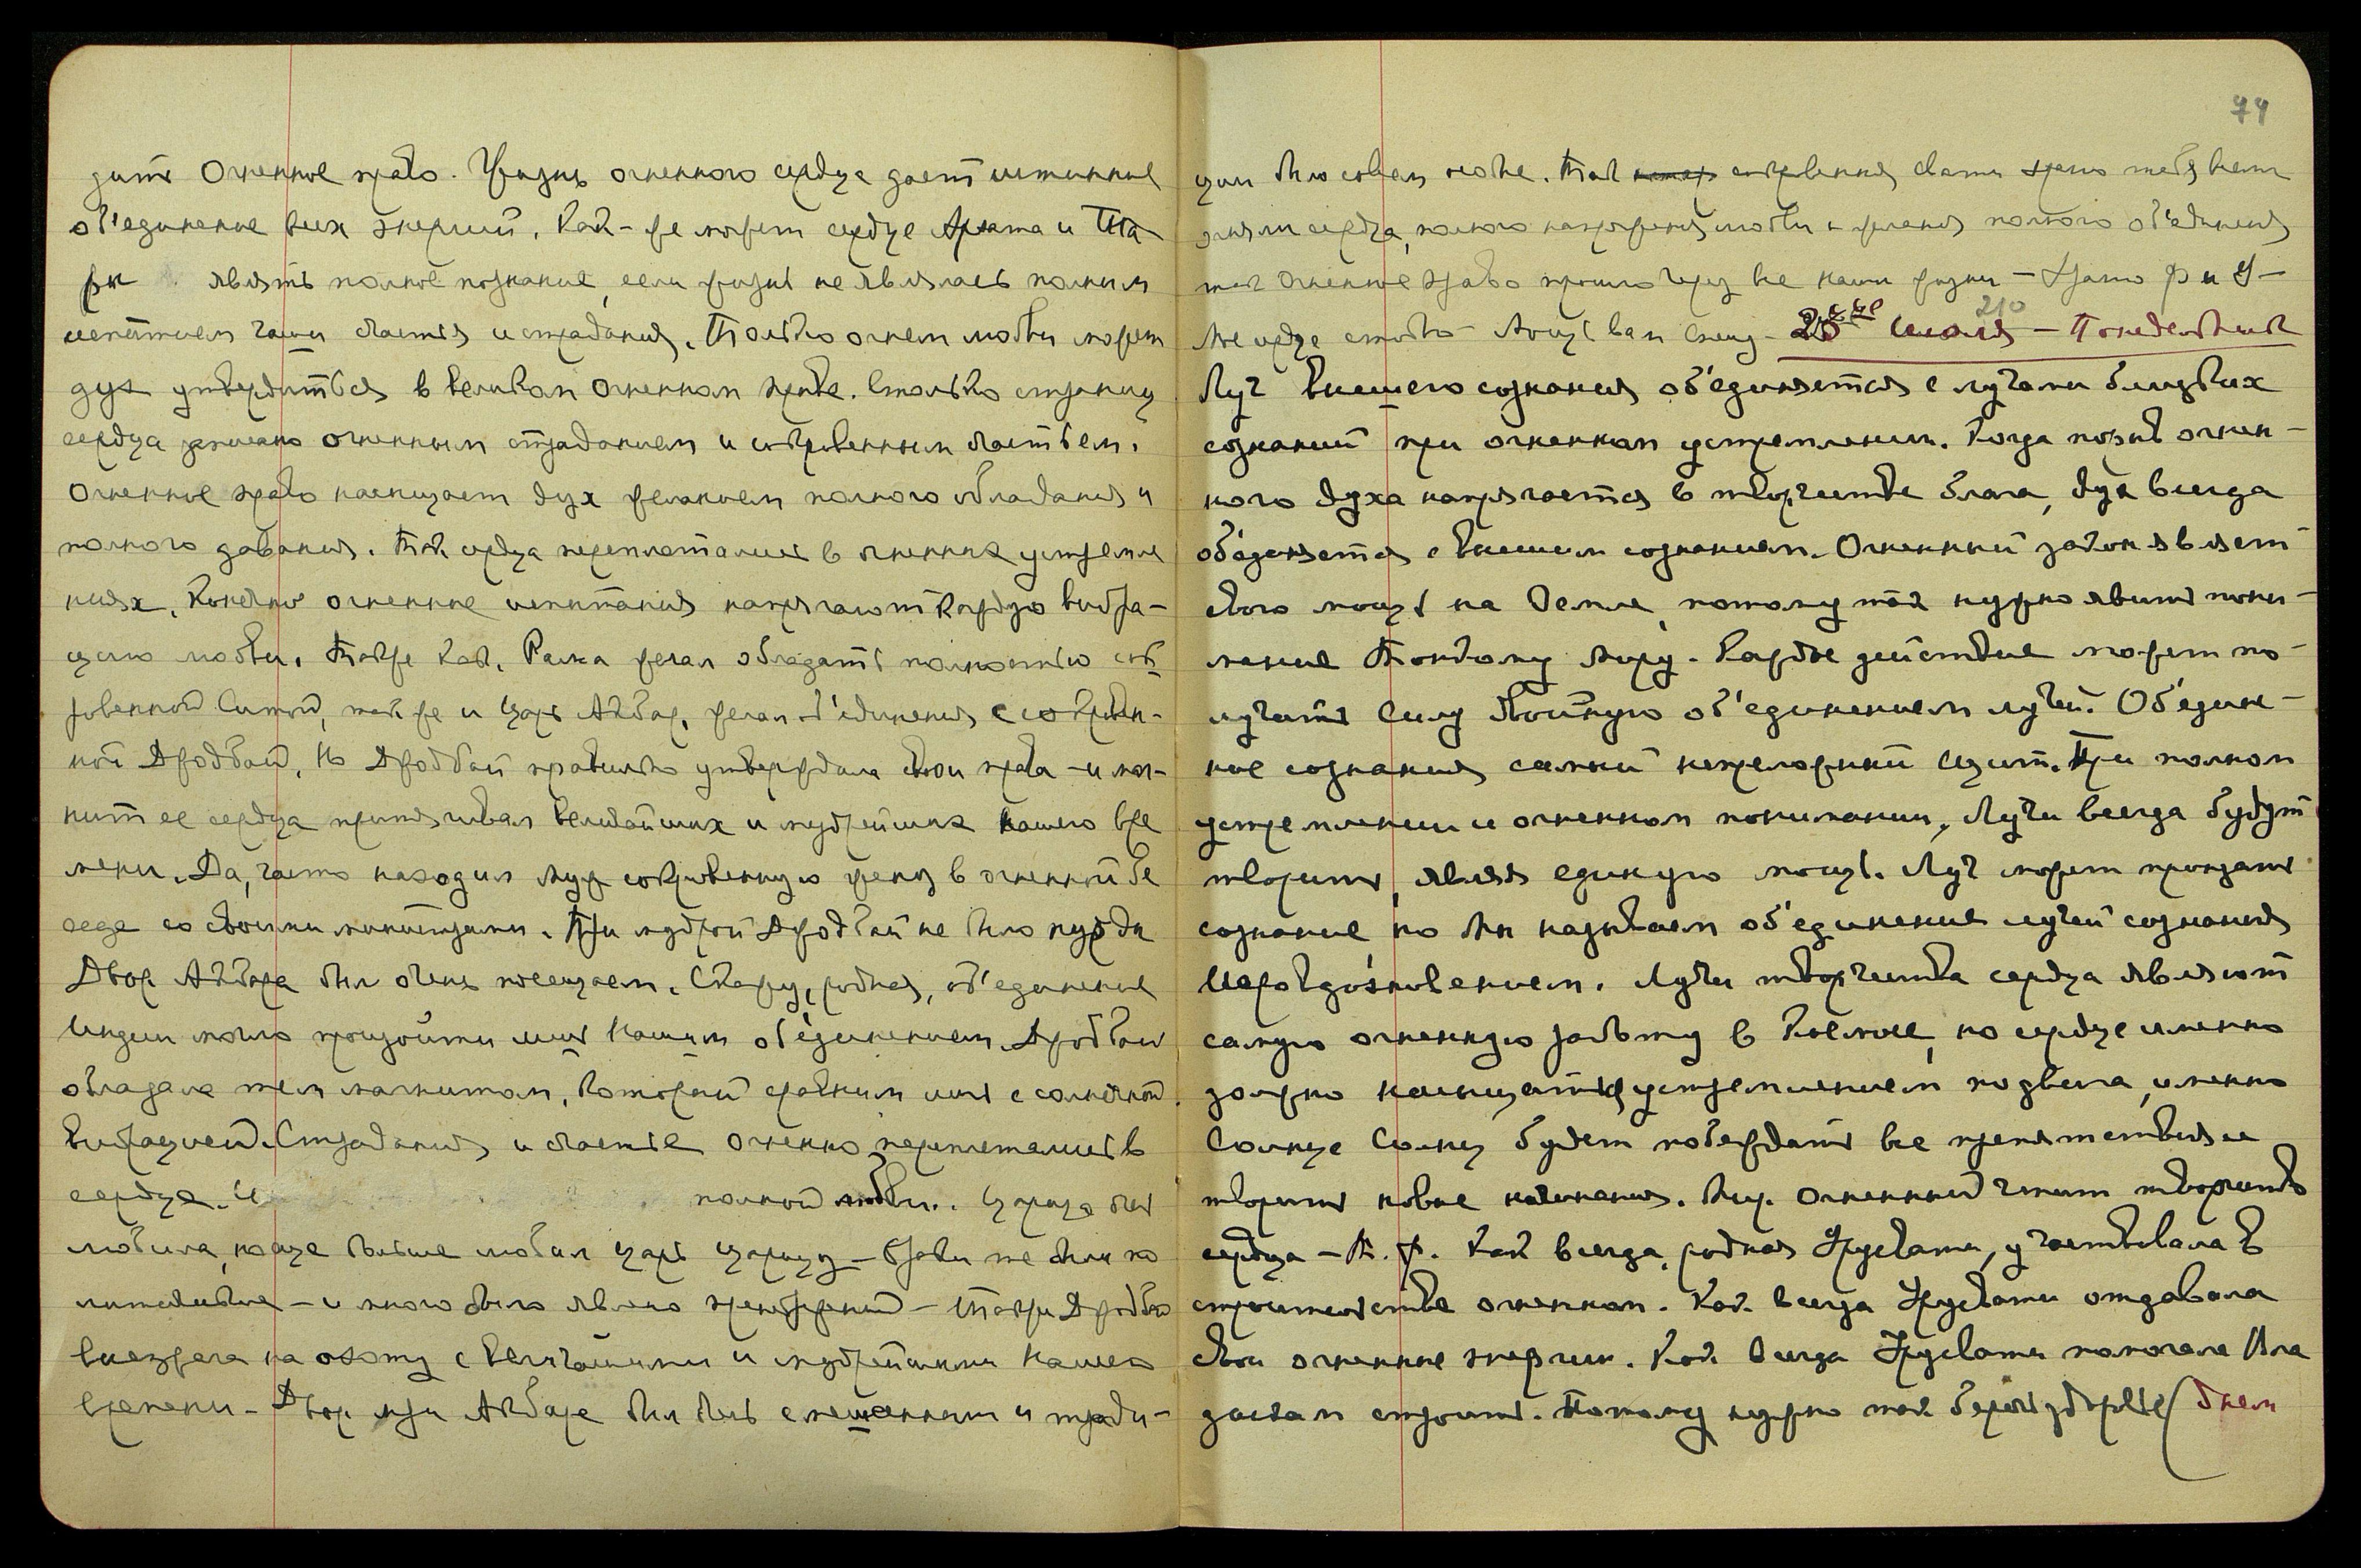 дить Огненное право. Жизнь огненного сердца дает истинное
об'единение всех энергий. Как-же может сердце и
явить полное познание, если жизнь не являлась полным
испитием чаши счастья и страдания. Только огнем любви может
дух утвердиться в великом Огненном праве. Столько страниц
сердца записано огненным страданием и сокровенным счастьем.
Огненное право насыщает дух желанием полного обладания и
полного давания. Так сердца переплетались в огненных устремле
ниях. Конечно огненные испытания напрягают каждую вибра-
цию любви. Также как Рама желал обладать полностью сок
ровенной Ситой, так же и Царь Акбар желал об'единения с сокровен-
ной Джодбай. Но Джодбай правильно утверждала свои права - и маг-
нит ее сердца притягивал величайших и мудрейших нашего вре
мени. Да, часто находил муж сокровенную жену в огненной бе
седе со своими министрами. При мудрой Джодбай не было нужды
Двор Акбара был очень посещаем. Скажу, родная, об'единение
Индии могло произойти лишь Нашим об'единением. Джодбай
обладала тем магнитом, который сравним лишь с солнечной
вибрацией. Страдания и счастье огненно переплетались в
сердце. И полной любви. Царица
любила, но еще больше любил царь царицу -
и много было явлено - Также Джодбай
выезжала на охоту с величайшими и мудрейшими Нашего
времени - Двор при Акбаре был и тради-
ции были совсем новые. Так сокровенная Свати
огнями сердца, полного напряжения любви и желания полного об'единения
так Огненное право прошло через все наши жизни -
Мое сердце - 210
28 Июля - Понедельник
Луч высшего сознания об'единяется с лучами близких
сознаний при огненном устремлении. Когда порыв огнен-
ного духа напрягается в творчестве блага, дух всегда
об'единяется с высшим сознанием. Огненный закон являет
свою мощь на Земле, потому так нужно явить пони-
мание Тонкому Миру. Каждое действие может по-
лучить силу двойную об'единением лучей. Об'едине-
ние сознания самый непреложный щит. При полном
устремлении и огненном понимании, Лучи всегда будут
творить, являя единую мощь. Луч может пронзать
сознание, но Мы называем об'единение лучей сознания
Иеровдохновением. Лучи творчества сердца являют
самую огненную работу в Космосе, но сердце именно
должно насыщаться устремлением подвига, именно
Солнце Солнц будет побеждать все препятствия и
творить новые начинания. Мир Огненный чтит творчество
сердца - Т. ж. как всегда, родная Урусвати, участвовала в
строительстве огненном. Как всегда Урусвати отдавала
свои огненные энергии. Как всегда Урусвати помогала Вла
дыкам строить. Потому нужно так беречь здоровье (днем